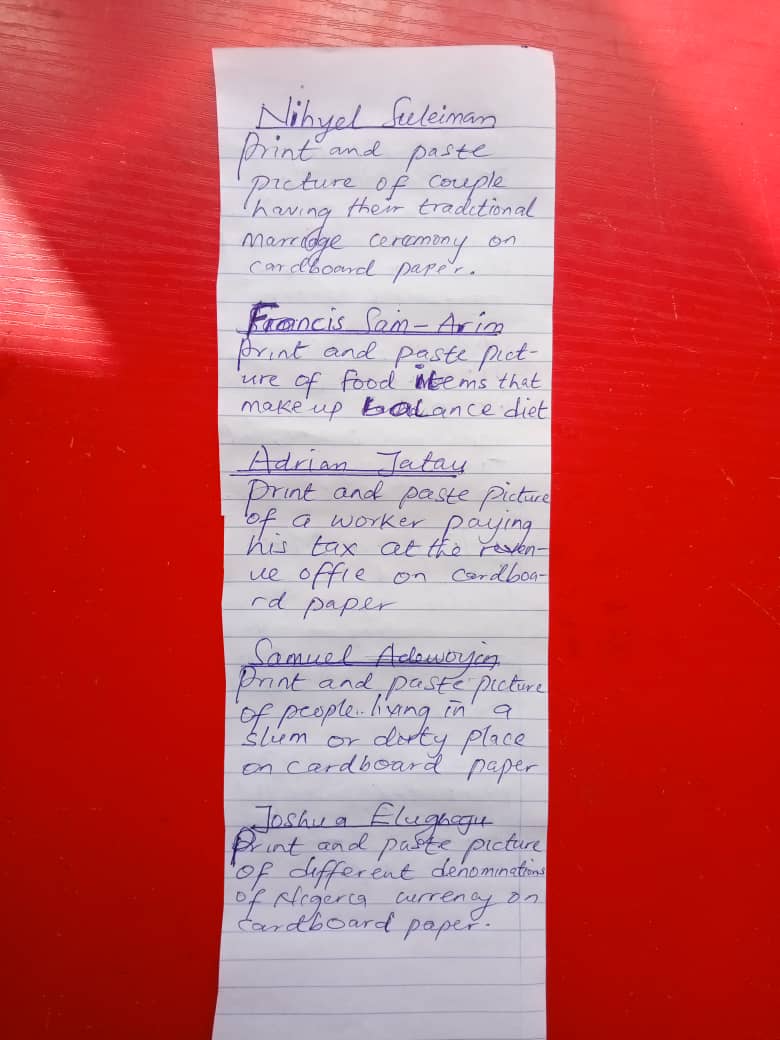 Nihyel Suleiman
Print and paste
picture of couple
having their traditional
marriage ceremony on
cardboard paper.
Francis Sam-Arin
Print and paste pict-
ure of food items that
make up balance diet
Adrian Jatau
Print and paste picture
of a worker paying
his tax at the reven-
ue offie on cardboa-
rd paper
Samuel Adewoyin
Print and paste picture
of people living in a
slum or dirty place
on cardboard paper
Joshua
Print and paste picture
of different denominations
of Nigeria currency on
cardboard paper.